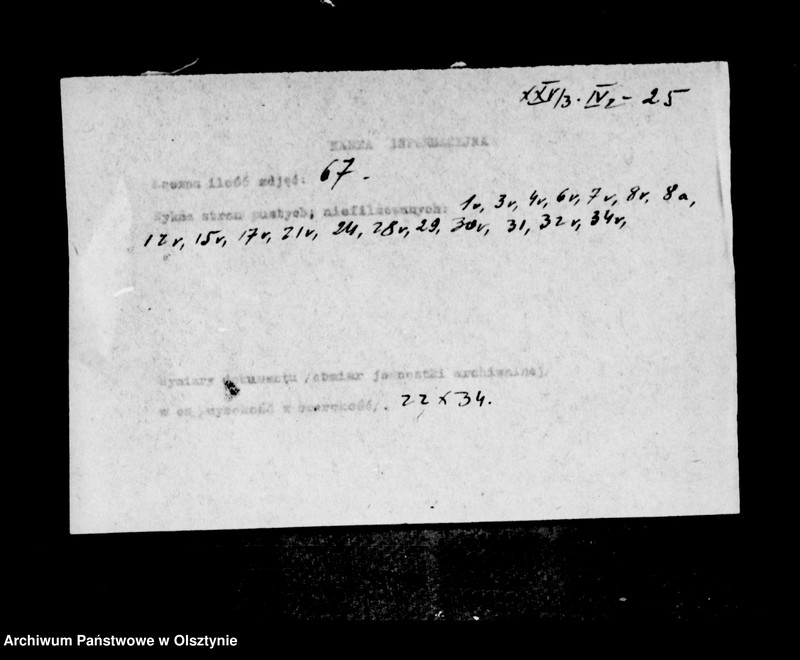 XXV/3. IV2 - 25
KARTA INFORMACYJNA
Łączna ilość zdjęć: 67.
Wykaz stron pustych, niefilmowanych: 1v, 3v, 4v, 6v, 7v, 8v, 8a,
12v, 15v, 17v, 21v, 24, 28v, 29, 30v, 31, 32v, 34v,
Wymiary dokumentu /obmiar jednostki archiwalnej/
w cm /wysokość x szerokość/. 22 x 34.
Archiwum Państwowe w Olsztynie